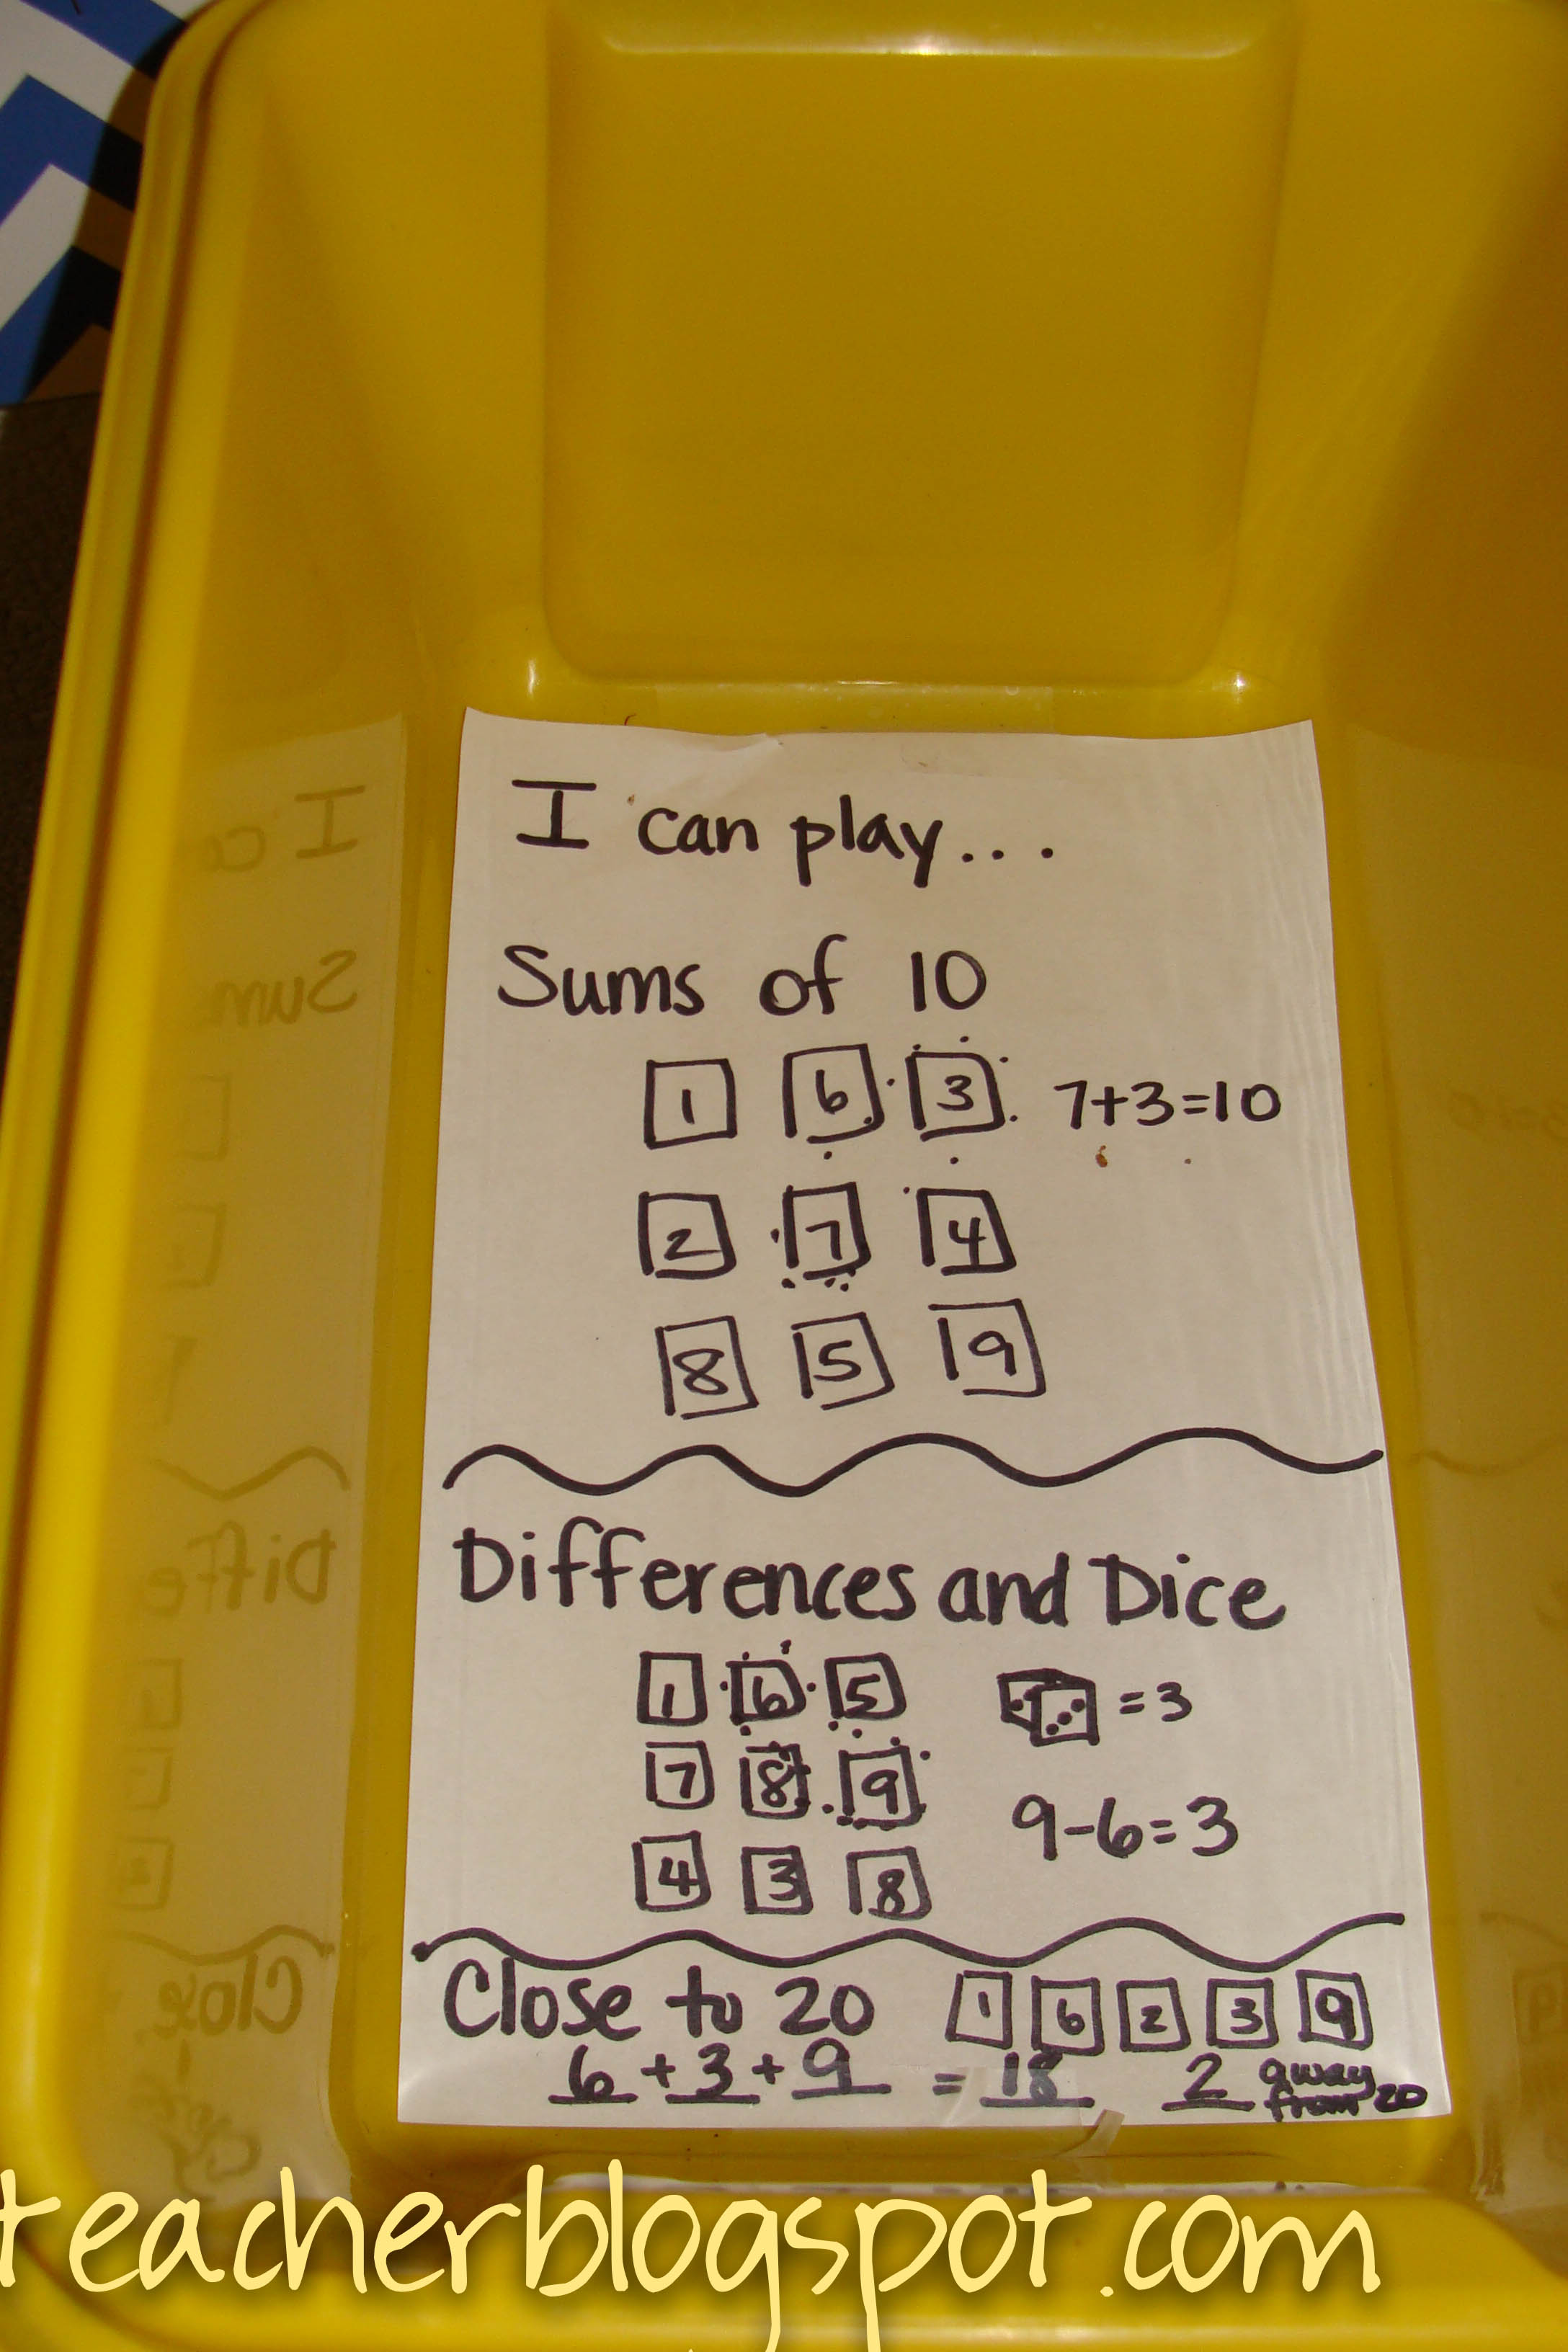 I can play...
Sums of 10
1 6 3 7+3=10
2 7 4
8 5 9
Differences and Dice
1 6 5 =3
7 8 9 9-6=3
4 3 8
Close to 20 1 6 2 3 9
6 + 3 + 9 = 18 2 away from 20
teacherblogspot.com